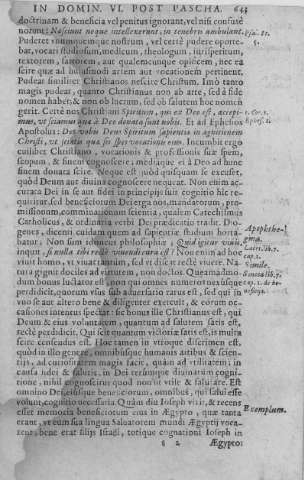 IN DOMIN. VI. POST PASCHA. 643
doctrinam & beneficia vel penitus ignorant, vel nisi confusè
norunt: Nescierunt neque intellexerunt, in tenebris ambulant. Psal. 81.
Puderet unumquemque nostrum, vel certè pudere oporte- 5.
bat, vocari studiosum, medicum, theologum, iurisperitum,
textorem, sartorem, aut qualemcunque opificem, nec ea
scire quæ ad huiusmodi artem aut vocationem pertinent.
Pudeat similiter Christianos nescire Christum. Imò tanto
magis pudeat, quanto Christianus non ab arte, sed à fide
nomen habet; & non ob lucrum, sed ob salutem hoc nomen
gerit. Certè nos Christiani Spiritum, qui ex Deo est, accepi- 1. Cor. 2.
mus, ut sciamus quæ à Deo donata sunt nobis. Et ad Ephesios Ephes. 1.
Apostolus: Det vobis Deus Spiritum sapientiæ in agnitionem
Christi, ut sciatis quæ sit spes vocationis eius. Incumbit ergo
cuilibet Christiano, vocationis & professionis suæ spem,
scopum, & finem cognoscere, mediaque ei à Deo ad hunc
finem donata scire. Neque est quòd quisquam se excuset,
quòd Deum aut divina cognoscere nequeat. Non enim ac-
curata Dei in se aut fidei in principiis suis cognitio hîc re-
quiritur, sed beneficiorum Dei erga nos, mandatorum, pro-
missionum, comminationum scientia, qualem Catechismus
Catholicus, & ordinaria verbi Dei prædicatio tradit. Dio-
genes, dicenti cuidam quem ad sapientiæ studium horta- Apophtheg-
batur: Non sum idoneus philosophiæ; Quid igitur vivis, ma.
inquit, si nulla tibi rectè vivendi cura est? Non enim ad hoc
vivit homo, ut vivat tantùm, sed ut discat rectè vivere. Na- Simile.
tura gignit dociles ad virtutem, non doctor. Quemadmo-
dum bonus luctator est, non qui omnes numeros nexusque
perdidicit, quorum usus sub adversario rarus est, sed qui in
uno se aut altero bene & diligenter exercuit, & eorum oc-
casiones intentus spectat: sic bonus ille Christianus est, qui
Deum & eius voluntatem, quantum ad salutem satis est,
rectè perdidicit. Qui scit quantum victoriæ satis est, is multa
scire censendus est. Hoc tamen in utroque discrimen est,
quòd in illo genere, omnibusque humanis artibus & scien-
tiis, ad curiositatem magis facit, quàm ad utilitatem; in
causa fidei & salutis, in Dei rerumque divinarum cogniti-
one, nihil cognoscitur quod non sit utile & salutare. Est
omnino Dei eiusque beneficiorum, omnibus, qui salvi esse
volunt, cognitio necessaria. Quàm diu Joseph vixit, & recens
esset memoria beneficiorum eius in Ægypto, quæ tanta Exemplum.
erant, ut eum sua lingua Salvatorem mundi Ægyptij voca-
rent, bene erat filijs Israël, totique cognationi Joseph in
s 2 Ægypto: